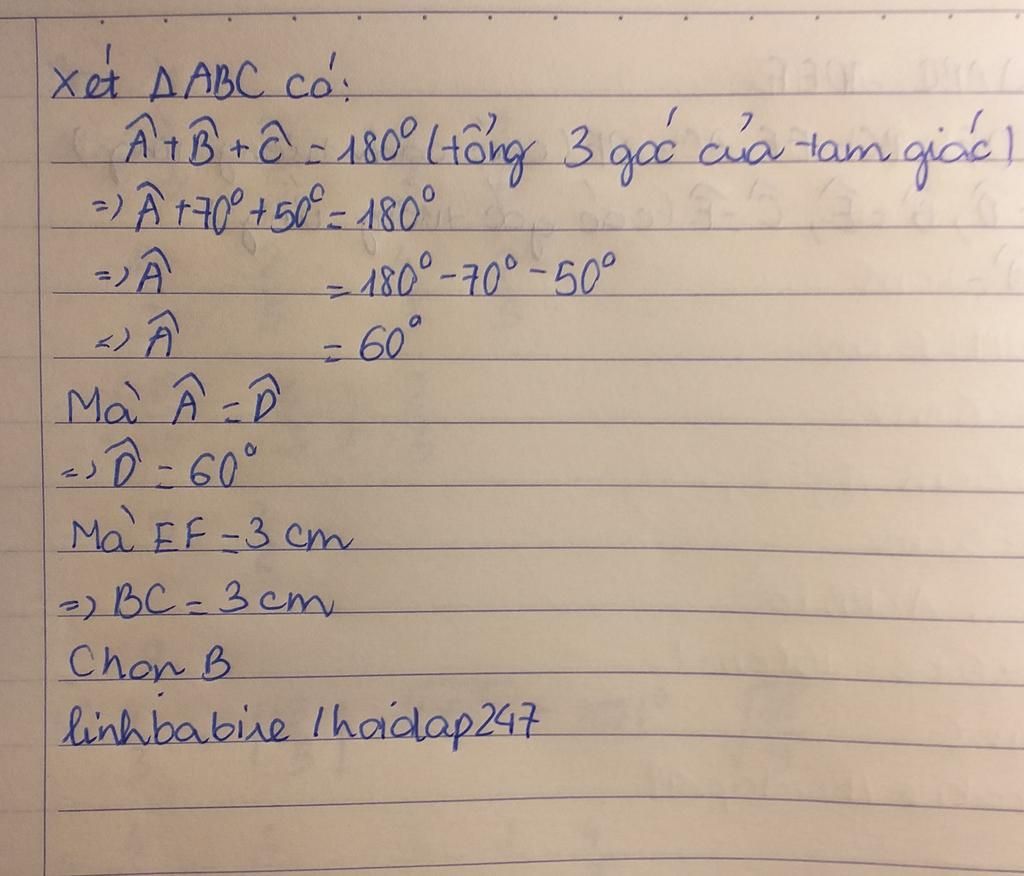 Xét ΔABC có:
Â + B̂ + Ĉ = 180° (tổng 3 góc của tam giác)
=> Â + 70° + 50° = 180°
=> Â = 180° - 70° - 50°
=> Â = 60°
Mà Â = D̂
=> D̂ = 60°
Mà EF = 3 cm
=> BC = 3 cm
Chọn B
linhbabire / hoidap247